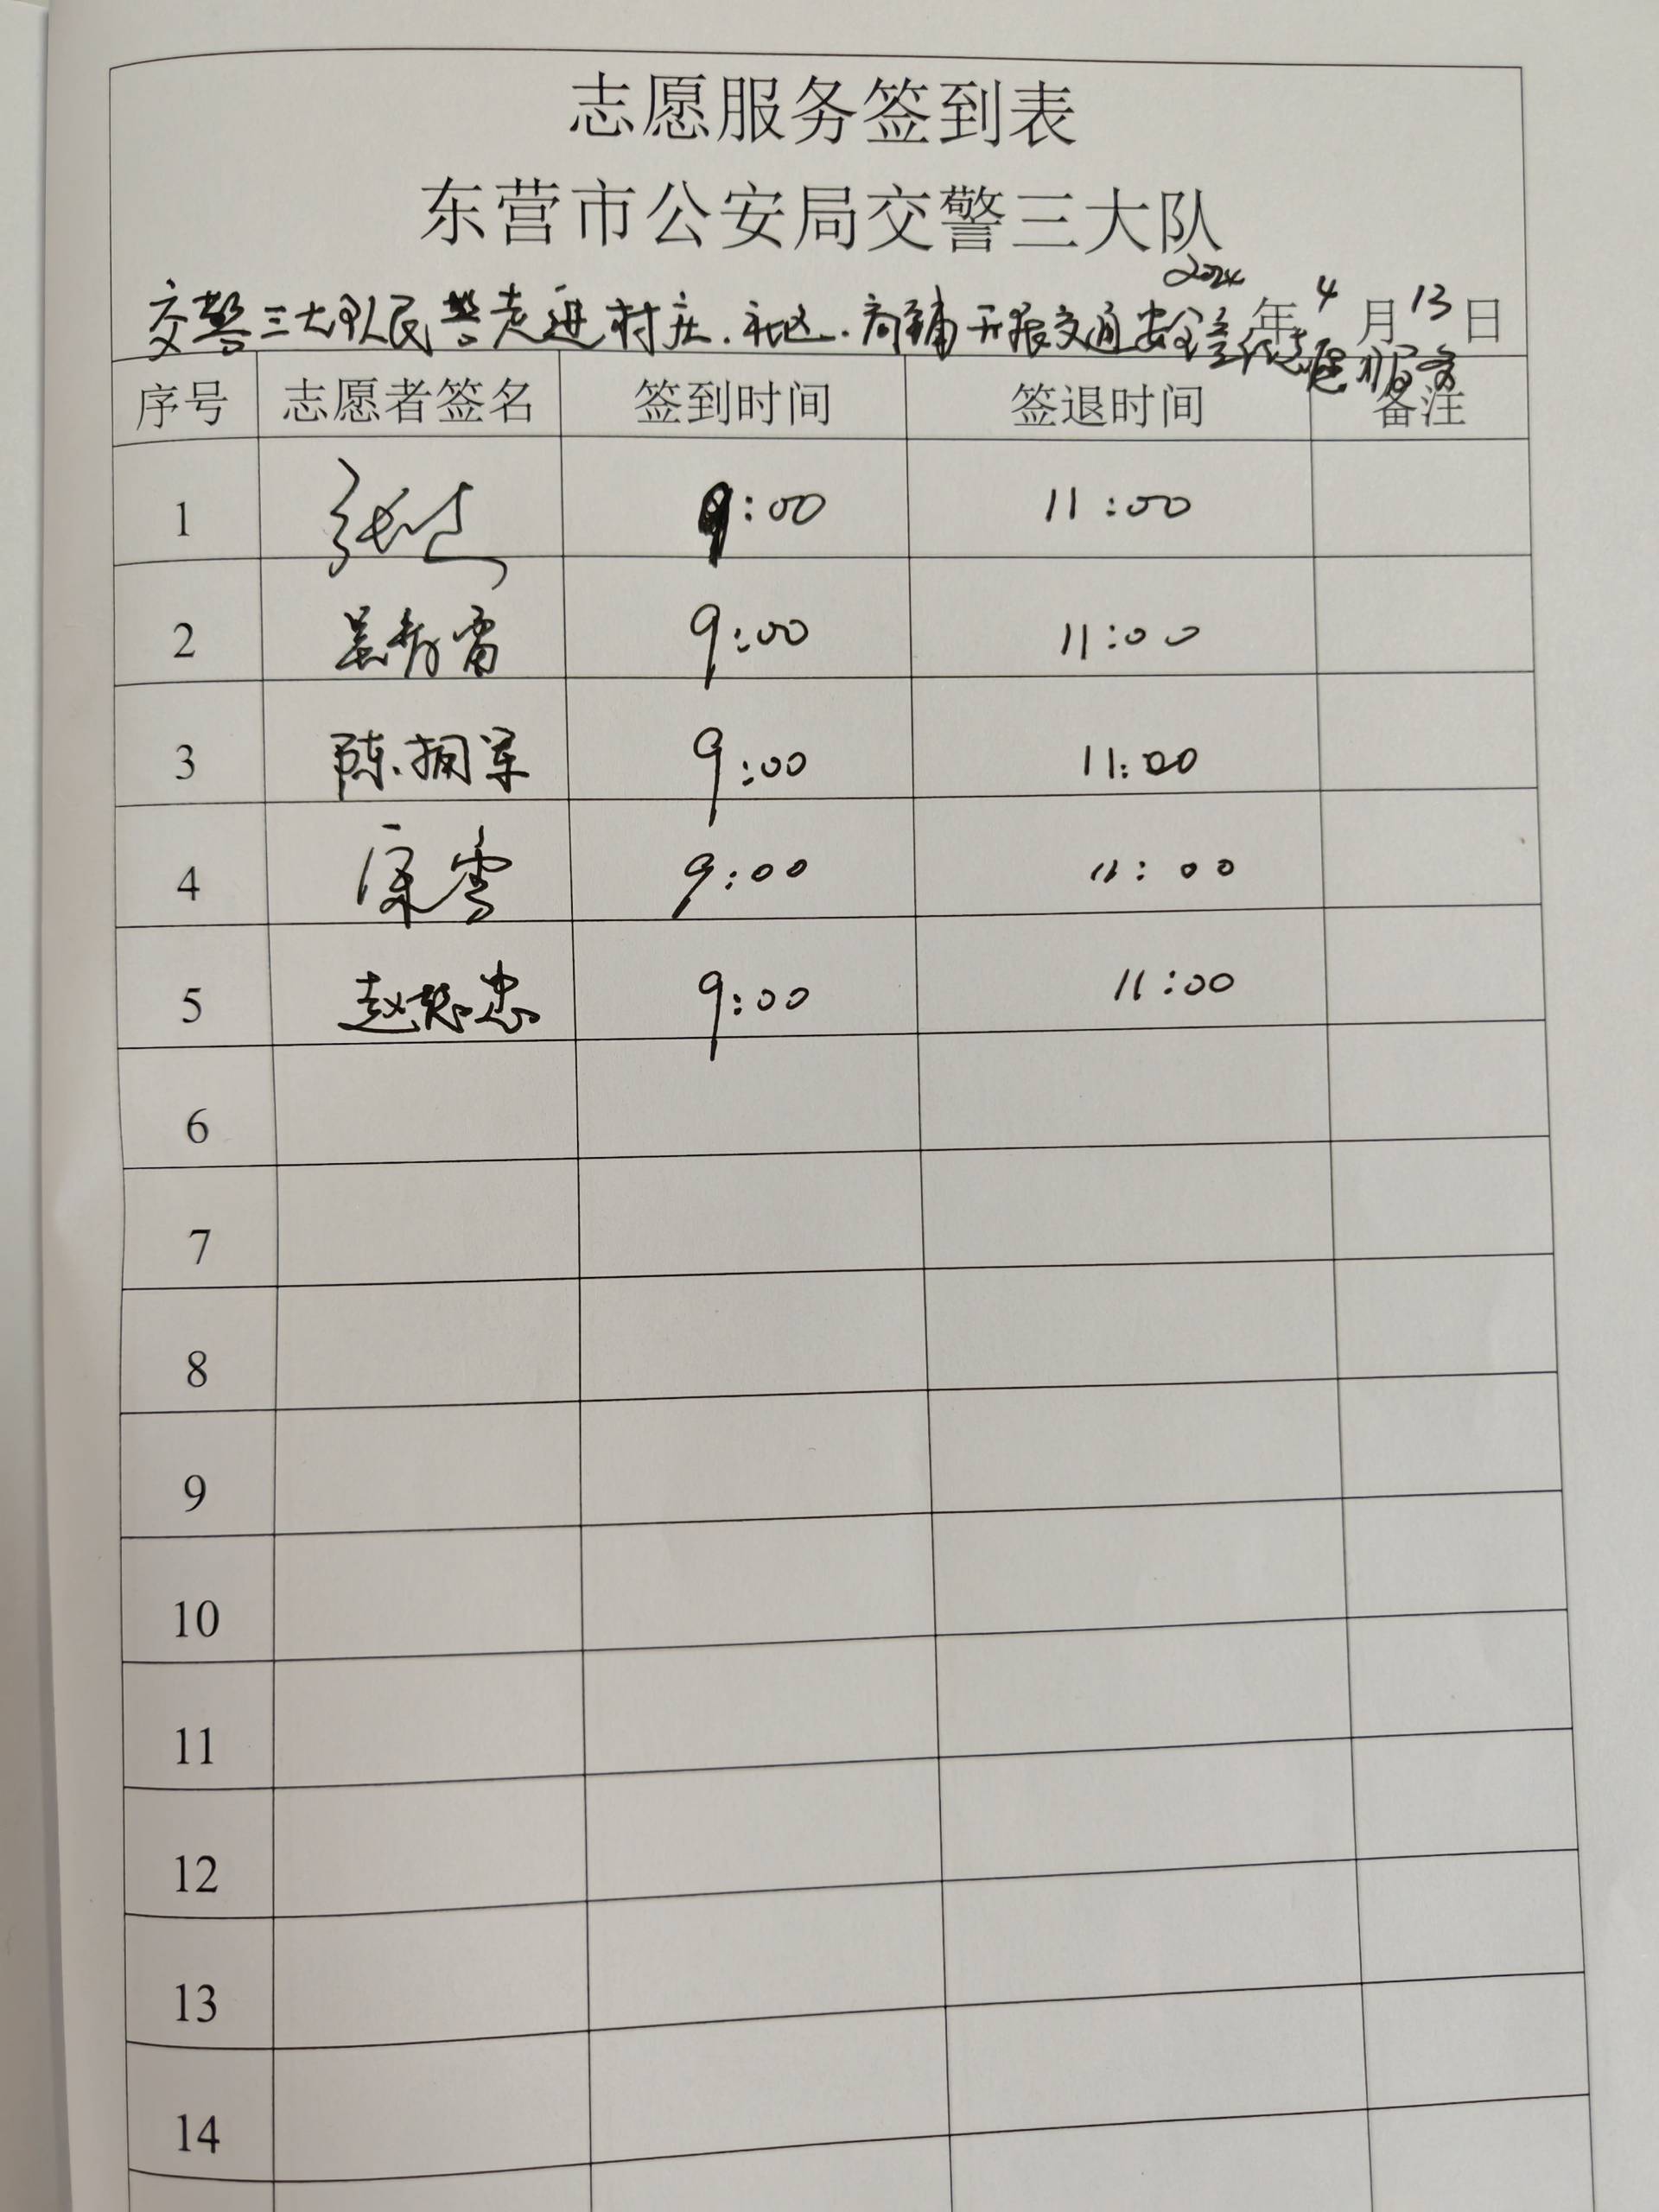 志愿服务签到表
东营市公安局交警三大队
2024年4月13日
交警三大队民警走进村庄.社区.商铺开展交通安全宣传志愿服务
序号 志愿者签名 签到时间 签退时间 备注
1 9:00 11:00
2 9:00 11:00
3 陈拥军 9:00 11:00
4 9:00 11:00
5 赵 忠 9:00 11:00
6
7
8
9
10
11
12
13
14